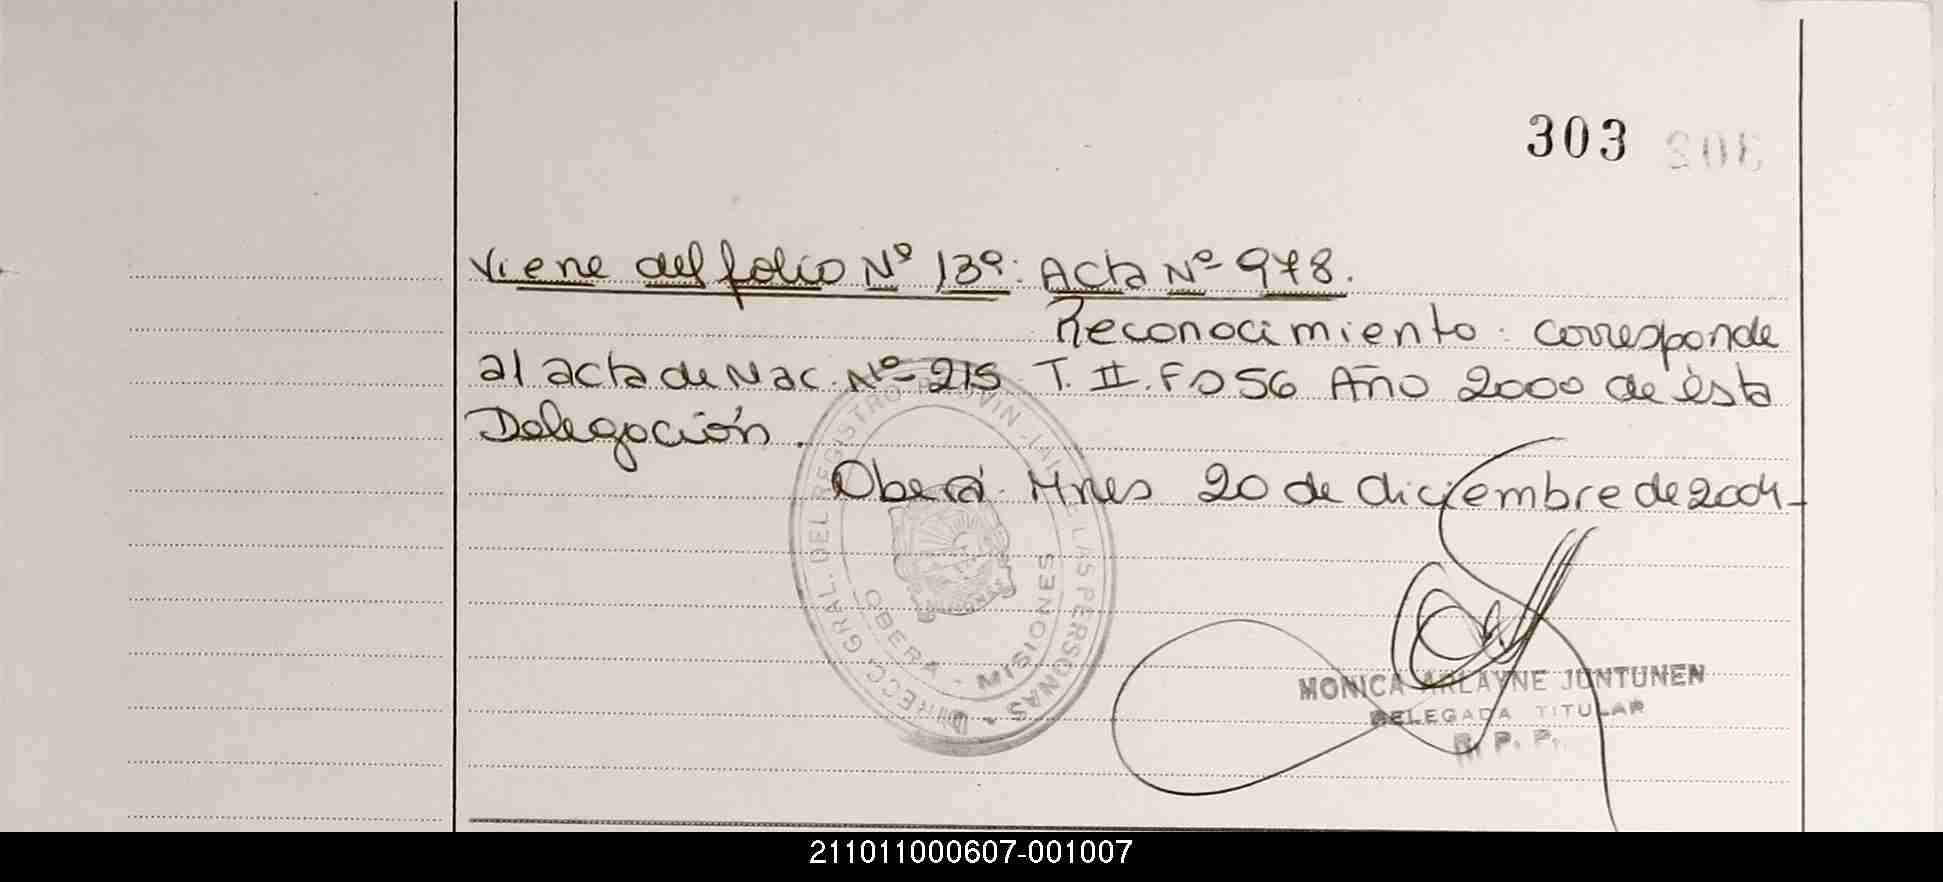 303
Viene del folio Nº 139: Acta Nº 978.
Reconocimiento: corresponde
al acta de Nac. Nº 215 T. II. Fº 56 Año 2000 de ésta
Delegación.
Oberá Mnes 20 de diciembre de 2004-
DIRECC. GRAL. DEL REGISTRO PROVINCIAL DE LAS PERSONAS -
OBERA - MISIONES
MONICA ARLAYNE JUNTUNEN
DELEGADA TITULAR
R. P. P.
211011000607-001007